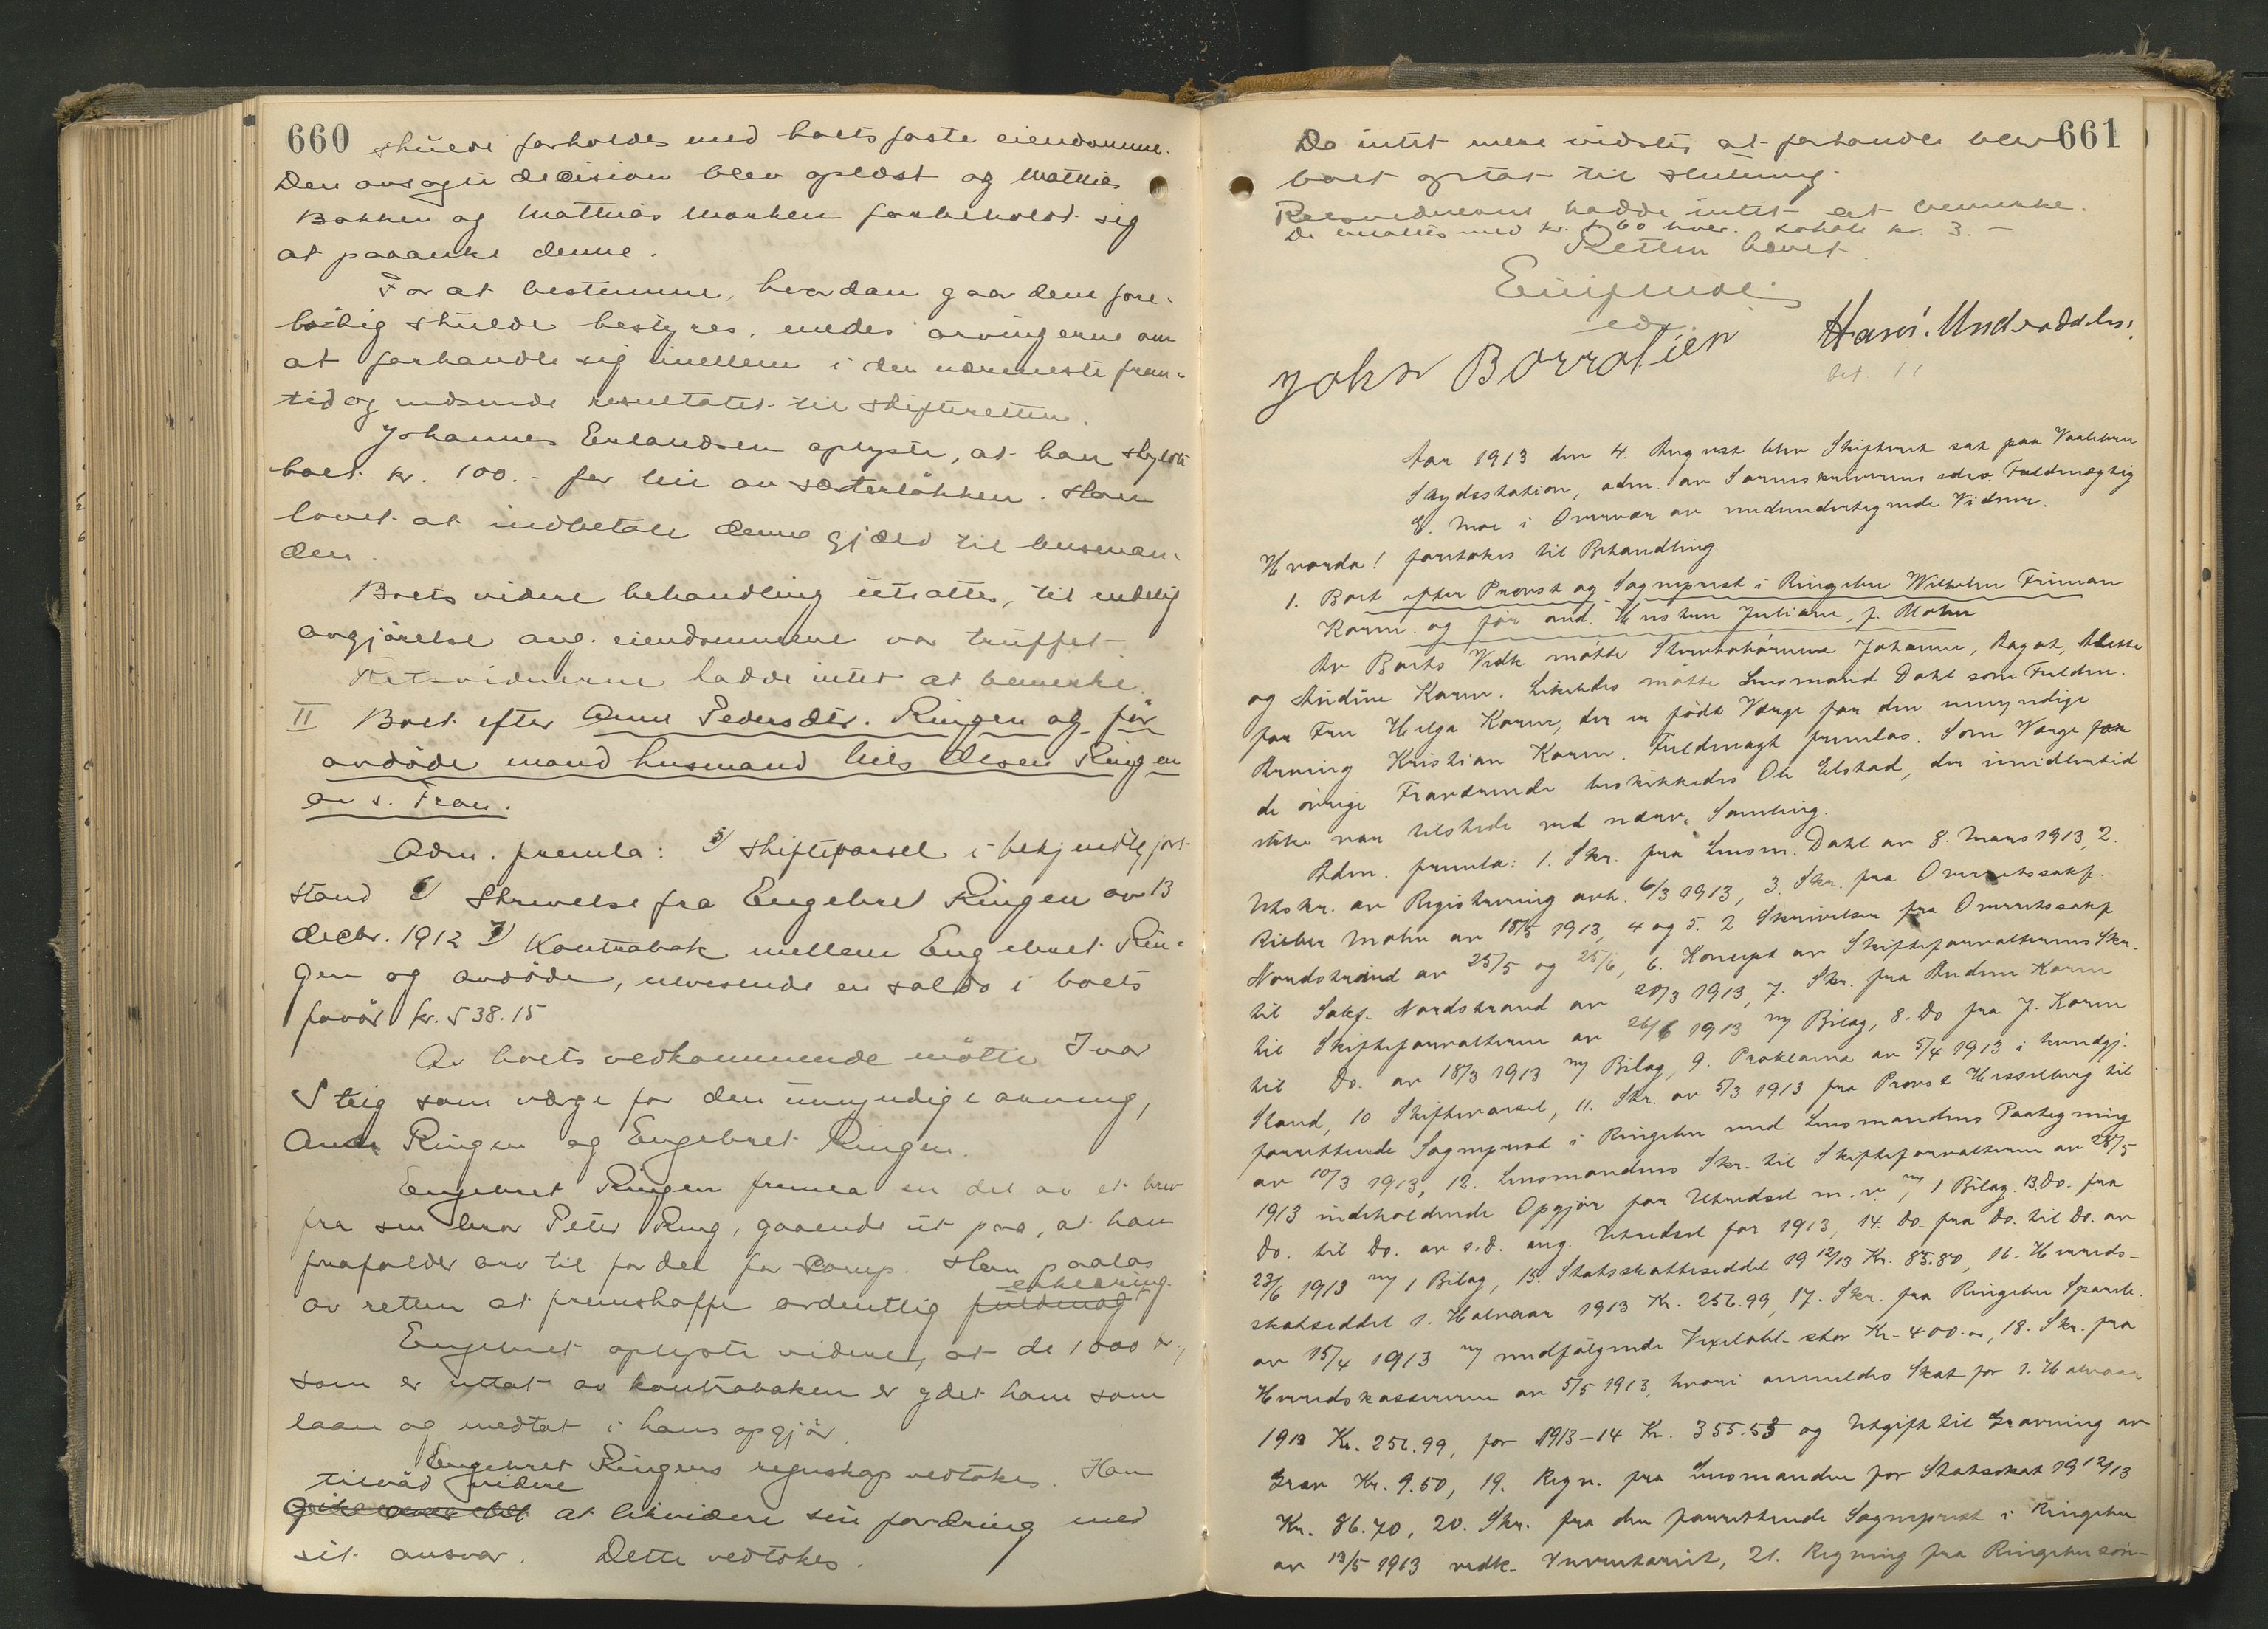 660
skulde forholdes med boets faste eiendomme.
Den avsagte decision blev oplæst og Mathias
Bakken og Mathias Marken forbeholdt sig
at paaanke denne.
For at bestemme, hvordan gaardene fore-
løbig skulde bestyres, enedes arvingerne om
at forhandle sig imellem i den nærmeste frem-
tid og indsende resultatet til skifteretten.
Johannes Erlandsen oplyste, at han skyldte
boet kr. 100.- for leie av sæterløkken. Han
lovet at indbetale denne gjæld til lensman-
den.
Boets videre behandling utsattes, til endelig
avgjørelse ang. eiendommene var truffet.
Retsvidnerne hadde intet at bemerke.
II Boet efter Anne Pedersdtr. Ringen og før
avdøde mand husmand Nils Olsen Ringen
av s. Fron.
Adm. fremla: 5) Skiftevarsel i bekjendtgjort
stand 6) Skrivelse fra Engebret Ringen av 13
decbr. 1912 7) Kontrabok mellem Engebret Rin-
gen og avdøde, utvisende en saldo i boets
favør kr. 538.15
Av boets vedkommende møtte Ivar
Steig som værge for den umyndige arving,
Anne Ringen og Engebret Ringen.
Engebret Ringen fremla en del av et brev
fra sin bror Peter Ring, gaaende ut paa, at han
frafalder arv til fordel for Han paalas
erklæring
av retten at fremskaffe ordentlig fuldmagt
Engebret oplyste videre, at de 1000 kr.,
som er uttat av kontraboken er ydet ham som
laan og medtat i hans opgjør.
Engebret Ringens regnskap vedtokes. Han
tilbød videre
at likvidere sin fordring med
sit ansvar. Dette vedtokes.
661
Da intet mere vidstes at forhandle blev
boet optat til slutning.
Retsvidnerne hadde intet at bemerke.
De ansattes med kr. 1.60 hver. Lokale kr. 3.-
Retten hævet
edv.
Johs Borralien
Hans
Aar 1913 den 4. August blev Skifteret sat paa Vaalebru
Skydsstation, adm. av Sorenskriverens edsv. Fuldmægtig
E. Moe i Overvær av medundertegnede Vidner.
Hvorda! foretokes til Behandling
1. Boet efter Provst og Sogneprest i Ringebu Wilhelm Friman
Koren og før avd. Hustru Juliane, f. Mohn
Av Boets Vedk. møtte Stervbobørnene Johanne, Aagot,
og Andrine Koren. Likeledes møtte Lensmand Dahl som Fuldm.
for Fru Helga Koren, der er født Værge for den umyndige
Arving Kristian Koren. Fuldmagt fremlas. Som Værge for
de øvrige Fraværende beskikkedes Ole Elstad, der imidlertid
ikke var tilstede ved nærv. Samling.
Adm. fremla: 1. Skr. fra Lensm. Dahl av 8. Mars 1913, 2.
Utskr. av Registrering avh. 6/3 1913, 3. Skr. fra Overretssakf.
Rieber Mohn av 18/5 1913, 4 og 5. 2 Skrivelser fra Overretssakf
Nordstrand av 25/5 og 25/6, 6. Koncept av Skifteforvalterens Skr.
til Sakf. Nordstrand av 28/3 1913, 7. Skr. fra Andrine Koren
til Skifteforvalteren av 26/6 1913 m/ Bilag, 8. Do fra J. Koren
til Do. av 18/3 1913 m/ Bilag, 9. Proklama av 5/4 1913 i kundgj.
Stand, 10 Skiftevarsel, 11. Skr. av 5/3 1913 fra Provst Hesselberg til
forrettende Sogneprest i Ringebu med Lensmandens Paategning
av 10/3 1913, 12. Lensmandens Skr. til Skifteforvalteren av 28/5
1913 indeholdende Opgjør for Utredsel m.v. m/ 1 Bilag. 13. Do. fra
Do. til Do. av s.d. ang. Utredsel for 1913, 14. Do. fra Do. til Do. av
23/6 1913 m/ 1 Bilag, 15. Statsskatteseddel 1912/13 Kr. 85.80, 16. Herreds-
skatseddel 1. Halvaar 1913 Kr. 256.99, 17. Skr. fra Ringebu Spareb.
av 15/4 1913 m/ medfølgende Vexelobl. stor Kr. 400.00, 18. Skr. fra
Herredskassereren av 5/5 1913, hvori anmeldes Skat for 1. Halvaar
1913 Kr. 256.99, for 1913-14 Kr. 355.53 og Utgift til Gravning av
Grav Kr. 9.50, 19. Regn. fra Lensmanden for Statsskat 1912/13
Kr. 86.70, 20. Skr. fra den forrettende Sogneprest i Ringebu
av 13/5 1913 vedk. Inventariet, 21. Regning fra Ringebu søn-